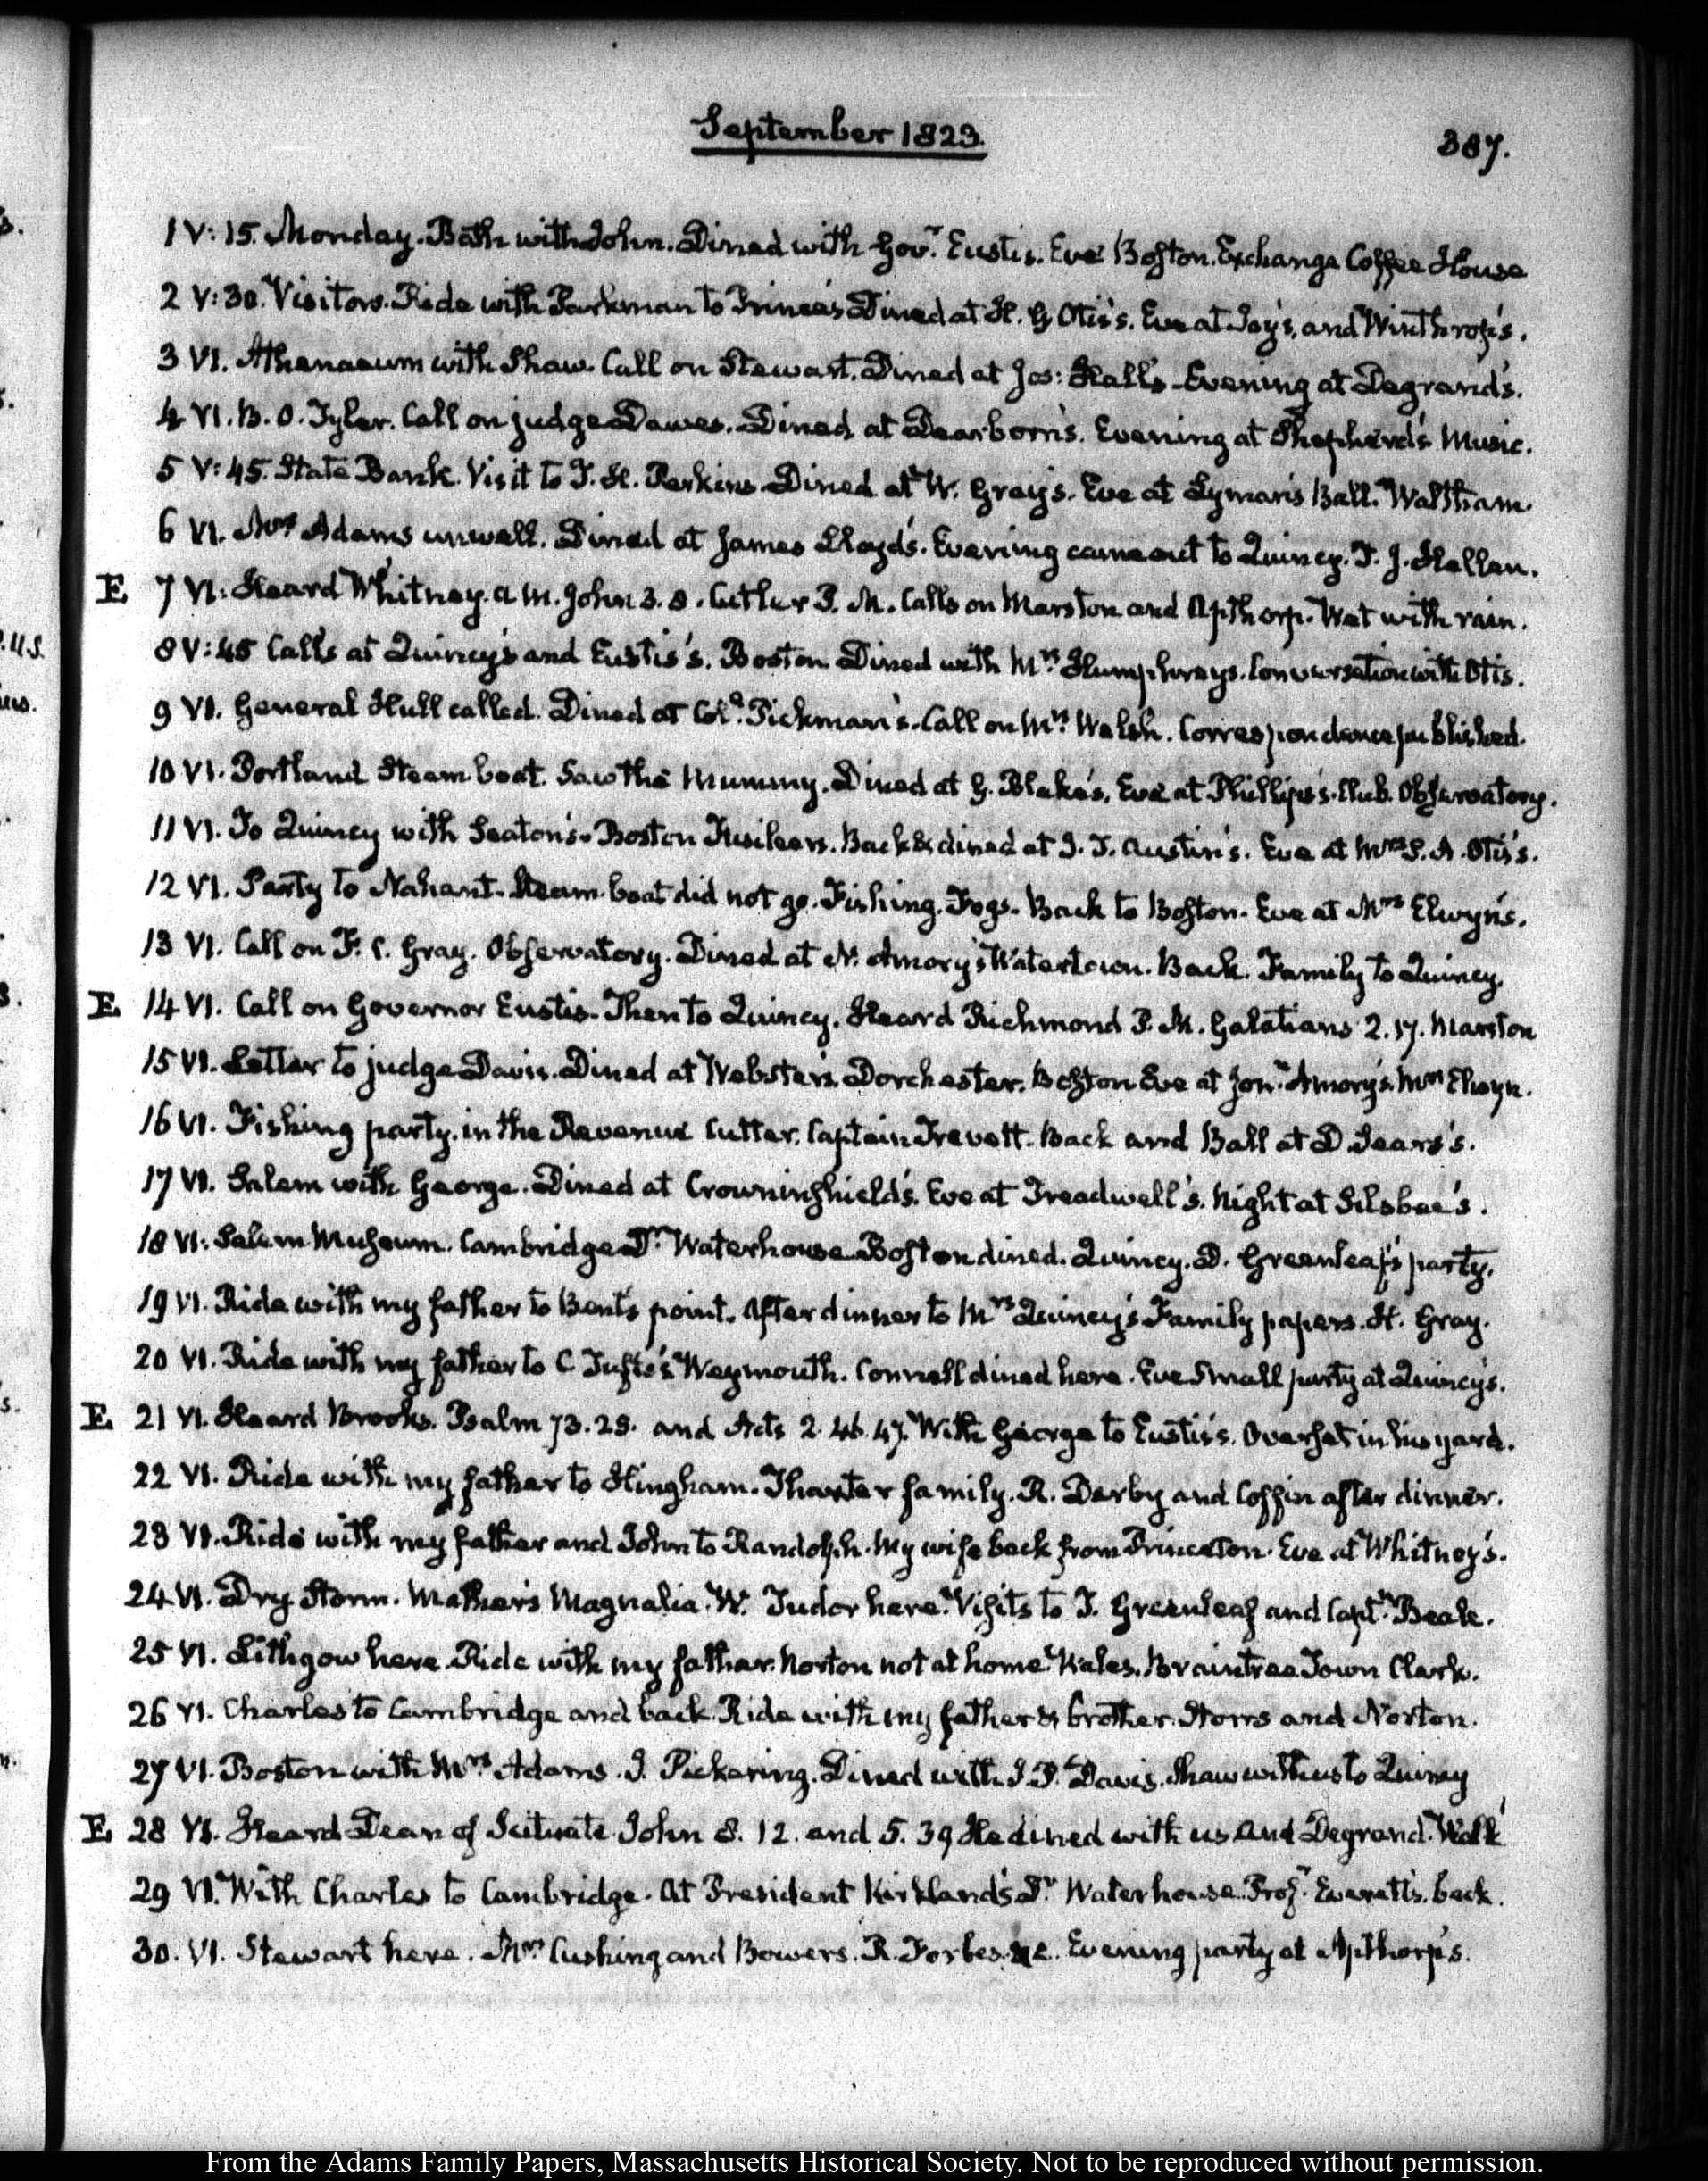 September 1823.
387.
1 V:15. Monday. Bath with John. Dined with Govr. Eustis. Eve Boston. Exchange Coffee House
2 V:30. Visitors. Ride with Parkman to Prince's Dined at H. G Otis's. Eve at Joy's, and Winthrop's.
3 VI. Athenaeum with Shaw. Call on Stewart. Dined at Jos: Hall's Evening at Degrand's.
4 VI. B. O. Tyler. Call on judge Dawes. Dined at Dearborn's. Evening at Shepherd's Music.
5 V:45. State Bank. Visit to T. H. Perkins Dined at W. Gray's. Eve at Lyman's Ball. Waltham.
6 VI. Mrs Adams unwell. Dined at James Lloyd's. Evening came out to Quincy. T. J. Hellen.
E 7 VI: Heard Whitney. a m. John 3. 8. Cutler P. M. Calls on Marston and Apthorp. Wet with rain.
U.S.
8 V:45 Calls at Quincy's and Eustis's. Boston Dined with Mrs Humphreys. Conversation with Otis.
9 VI. General Hull called. Dined at Col. Pickman's. Call on Mrs Welsh. Correspondence published.
10 VI. Portland Steam boat. Saw the Mummy. Dined at G. Blake's. Eve at Phillips's. Club. Observatory.
11 VI. To Quincy with Seaton's. Boston Fusileers. Back & dined at J. T. Austin's. Eve at Mrs S. A. Otis's.
12 VI. Party to Nahant. Steam-boat did not go. Fishing. Fogs. Back to Boston. Eve at Mrs Elwyn's.
13 VI. Call on F. C. Gray. Observatory. Dined at N. Amory's Watertown. Back. Family to Quincy.
E 14 VI. Call on Governor Eustis. Then to Quincy. Heard Richmond P. M. Galatians 2. 17. Marston
15 VI. Letter to judge Davis. Dined at Webster's. Dorchester. Boston Eve at Jon. Amory's. Mrs Elwyn.
16 VI. Fishing party. in the Revenue Cutter. Captain Trevett. Back and Ball at D Sears's.
17 VI. Salem with George. Dined at Crowninshield's. Eve at Treadwell's. Night at Silsbee's.
18 VI: Salem Museum. Cambridge Dr. Waterhouse Boston dined. Quincy. D. Greenleaf's party.
19 VI. Ride with my father to Bent's point. After dinner to Mrs Quincy's Family papers. H. Gray.
20 VI. Ride with my father to C Tufts's Weymouth. Connell dined here. Eve Small party at Quincy's.
E 21 VI. Heard Brooks. Psalm 73. 28. and Acts 2. 46. 47. With George to Eustis's. Overset in his yard.
22 VI. Ride with my father to Hingham. Thaxter family. R. Derby and Coffin after dinner.
23 VI. Ride with my father and John to Randolph. My wife back from Princeton. Eve at Whitney's.
24 VI. Dry Storm. Mather's Magnalia. W. Tudor here. Visits to T. Greenleaf and Captn. Beale.
25 VI. Lithgow here. Ride with my father. Norton not at home. Wales. Braintree Town Clerk.
26 VI. Charles to Cambridge and back. Ride with my father & brother. Storrs and Norton.
27 VI. Boston with Mrs Adams. J. Pickering. Dined with I. P. Davis. Shaw with us to Quincy
E 28 VI. Heard Dean of Scituate John 8. 12. and 5. 39 He dined with us and Degrand. Walk
29 VI. With Charles to Cambridge. At President Kirkland's Dr Waterhouse. Profr. Everett's. back.
30. VI. Stewart here. Mrs Cushing and Bowers. R. Forbes. Evening party at Apthorp's.
From the Adams Family Papers, Massachusetts Historical Society. Not to be reproduced without permission.